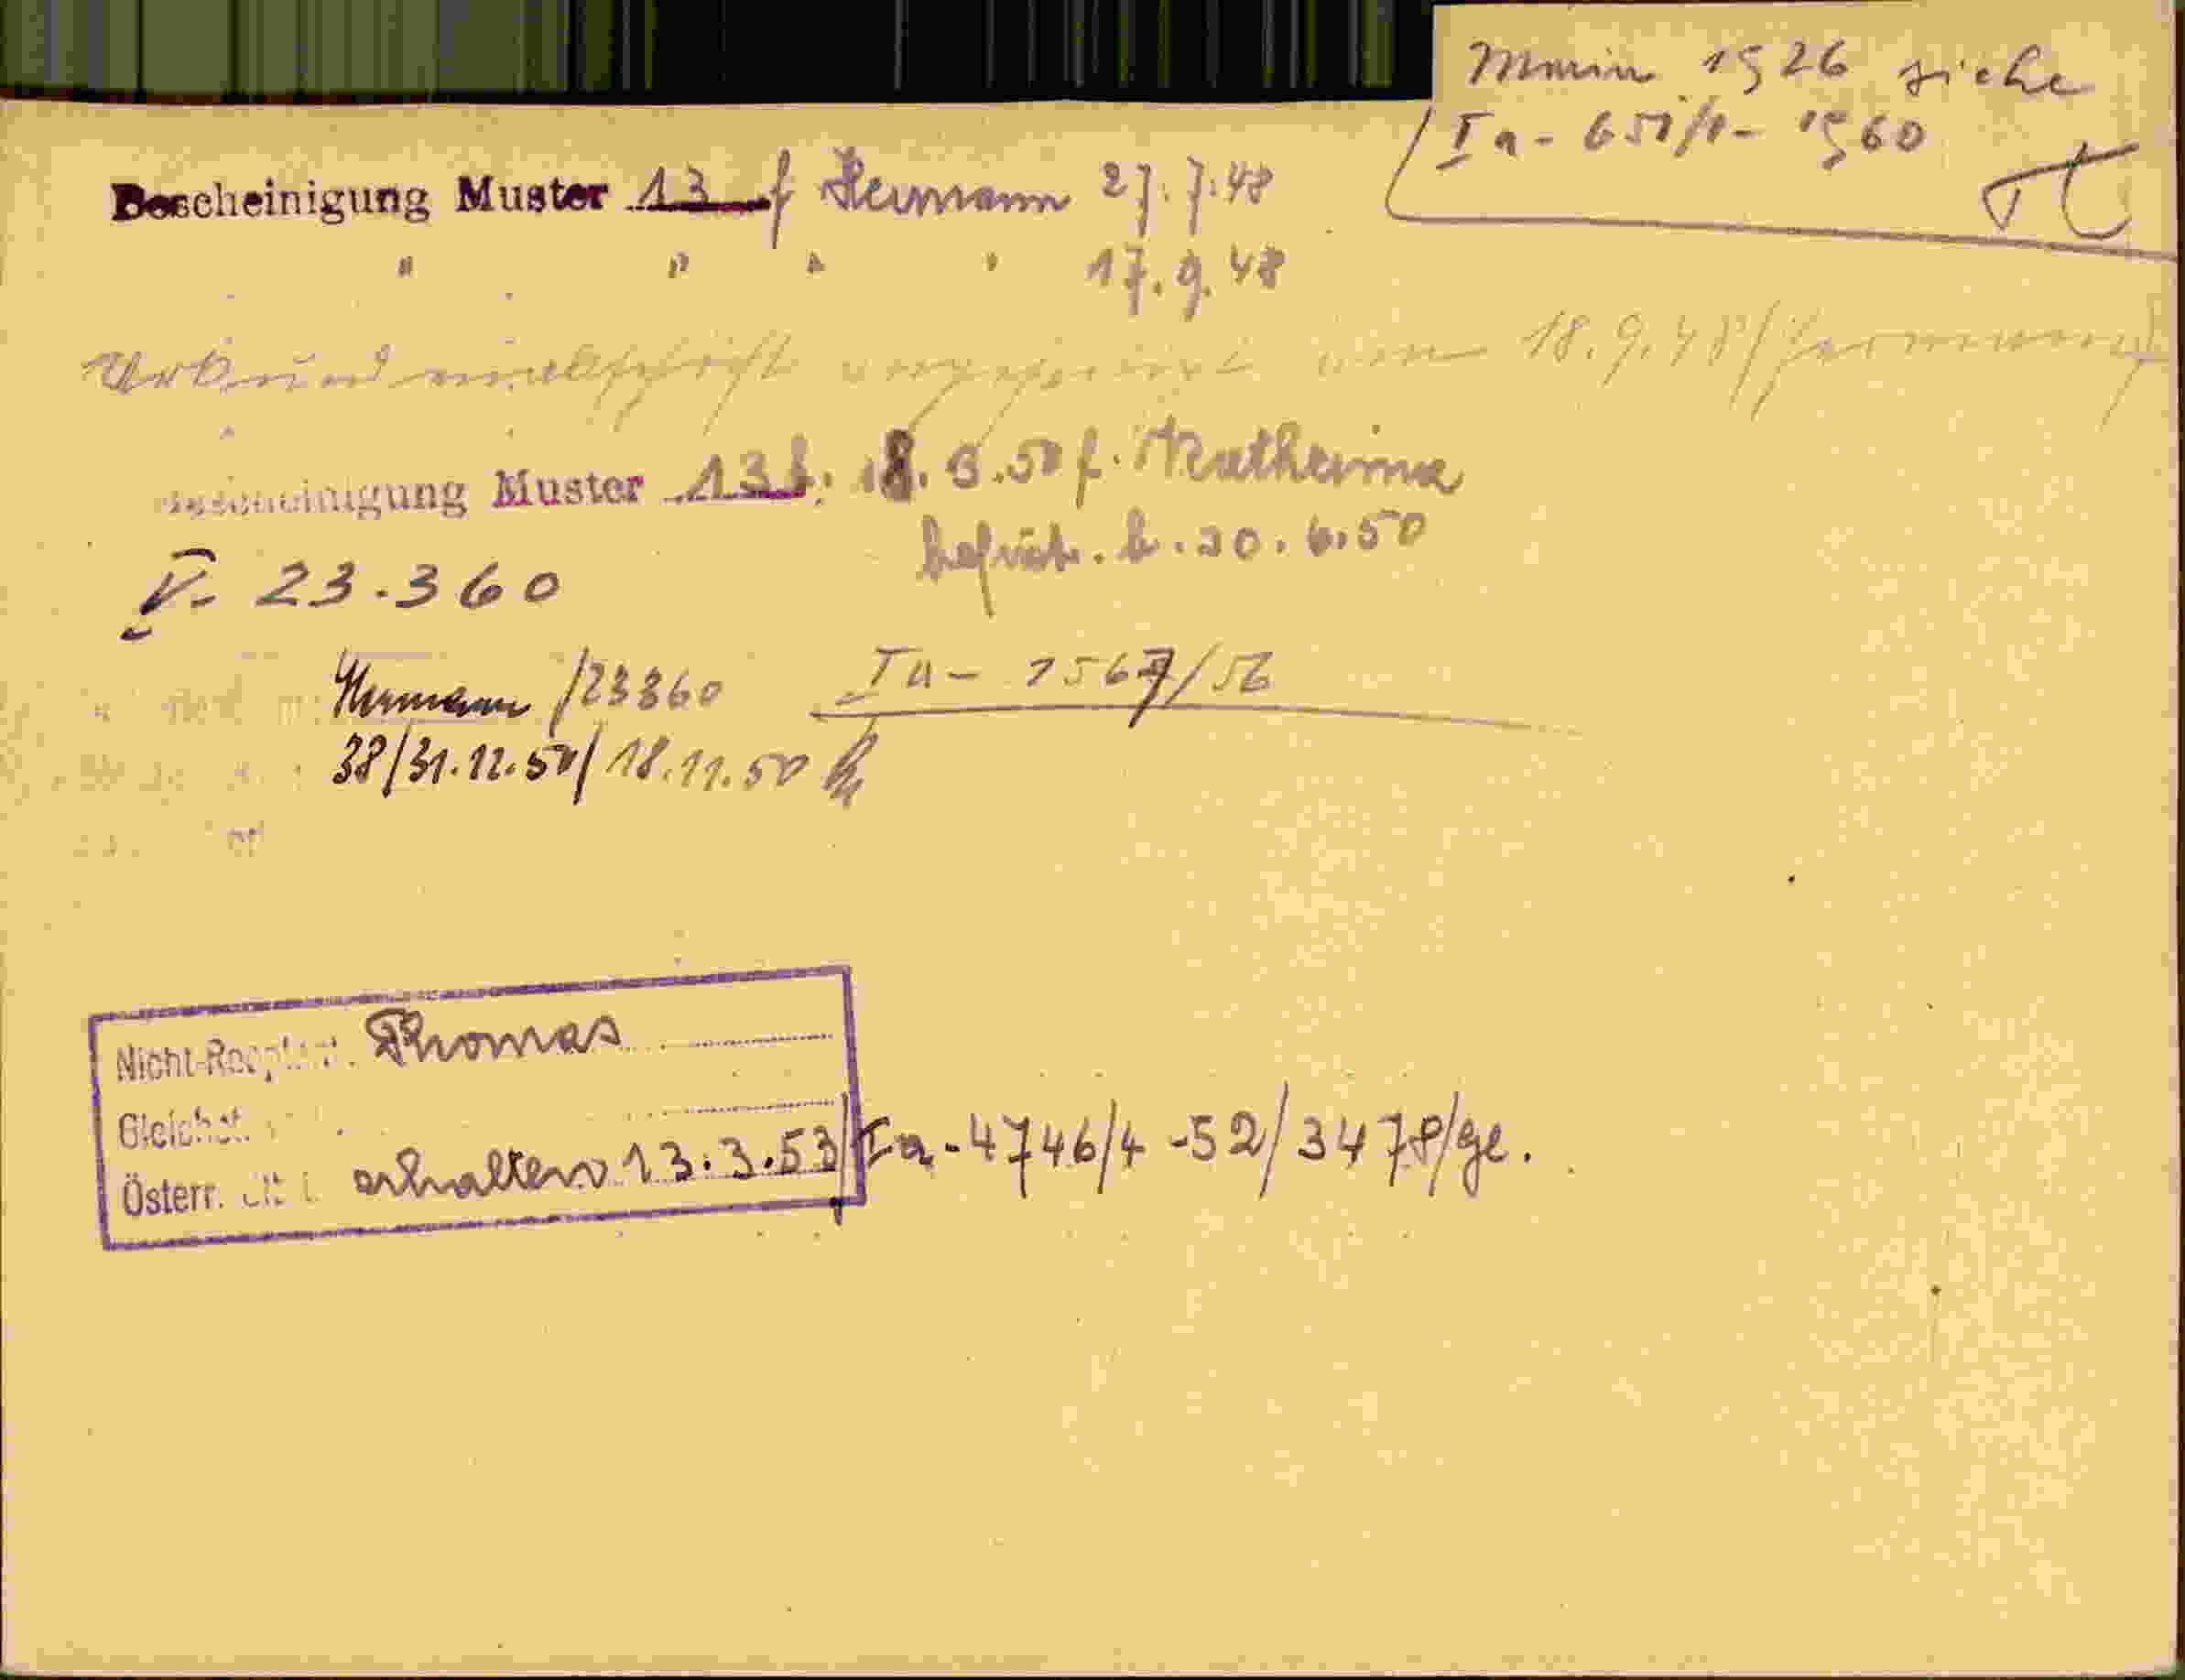 1926 siehe
Ia - 651/1 - 1960
Bescheinigung Muster 13 f Hermann 27.7.48
" " " " 17.9.48
18.9.48/Hermann
Bescheinigung Muster 13 f. 18. 5.50 f. Katharina
befrist. b. 20.6.50
V- 23.360
Hermann /23360 Ia - 1567/56
38/31.12.50/ 18.11.50
Nicht- Thomas
Österr. erhalten 13.3.53/Ia-4746/4-52/3478/ge.